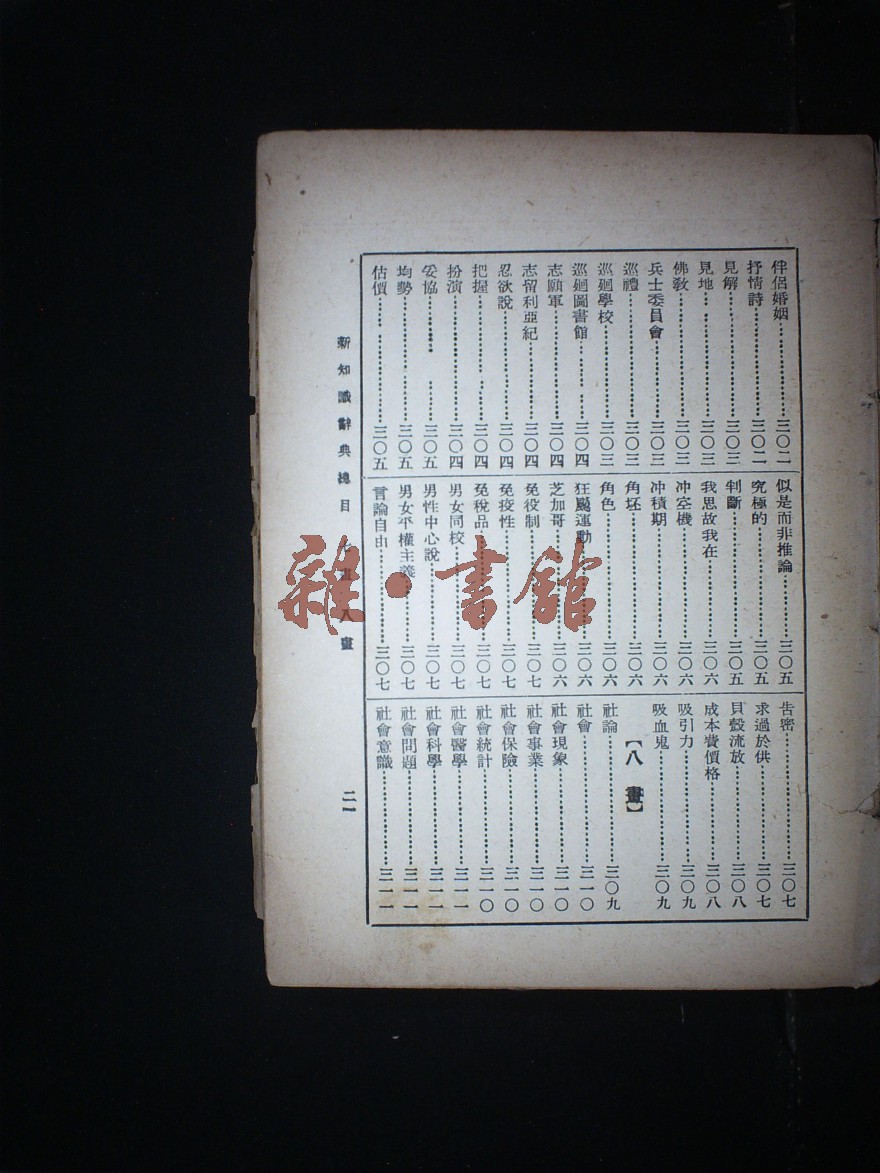 伴侶婚姻……三〇二
抒情詩……三〇二
見解……三〇三
見地……三〇三
佛敎……三〇三
兵士委員會……三〇三
巡禮……三〇三
巡廻學校……三〇三
巡廻圖書館……三〇四
志願軍……三〇四
志留利亞紀……三〇四
忍欲說……三〇四
把握……三〇四
扮演……三〇四
妥協……三〇五
均勢……三〇五
估價……三〇五
似是而非推論……三〇五
究極的……三〇五
判斷……三〇五
我思故我在……三〇六
冲空機……三〇六
冲積期……三〇六
角坯……三〇六
角色……三〇六
狂飈運動……三〇六
芝加哥……三〇六
免役制……三〇七
免疫性……三〇七
免稅品……三〇七
男女同校……三〇七
男性中心說……三〇七
男女平權主義……三〇七
言論自由……三〇七
吿密……三〇七
求過於供……三〇七
貝殼流放……三〇八
成本費價格……三〇八
吸引力……三〇九
吸血鬼……三〇九
【八畫】
社論……三〇九
社會……三一〇
社會現象……三一〇
社會事業……三一〇
社會保險……三一〇
社會統計……三一〇
社會醫學……三一一
社會科學……三一一
社會問題……三一一
社會意識……三一一
新知識辭典總目 七畫 八畫
二一
雜·書館